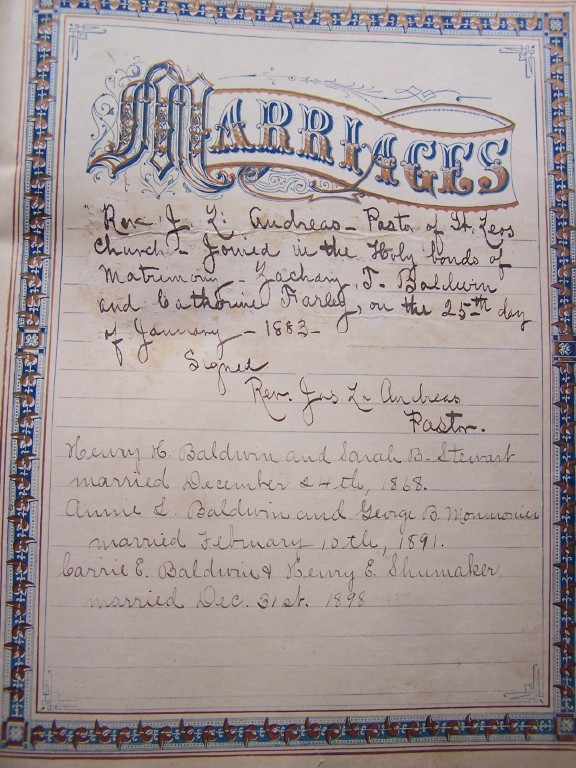 MARRIAGES
Rev. J. L. Andreas - Pastor of St. Leos
Church - Joined in the Holy bonds of
Matrimony - Zachary. T. Baldwin
and Catherine Farley, on the 25th day
of January - 1883 -
Signed
Rev. Jas L. Andreas
Pastor.
Henry H. Baldwin and Sarah B. Stewart
married December 24th, 1868.
Annie L. Baldwin and George B.
married February 10th, 1891.
Carrie E. Baldwin & Henry E. Shumaker
married Dec. 31st. 1898